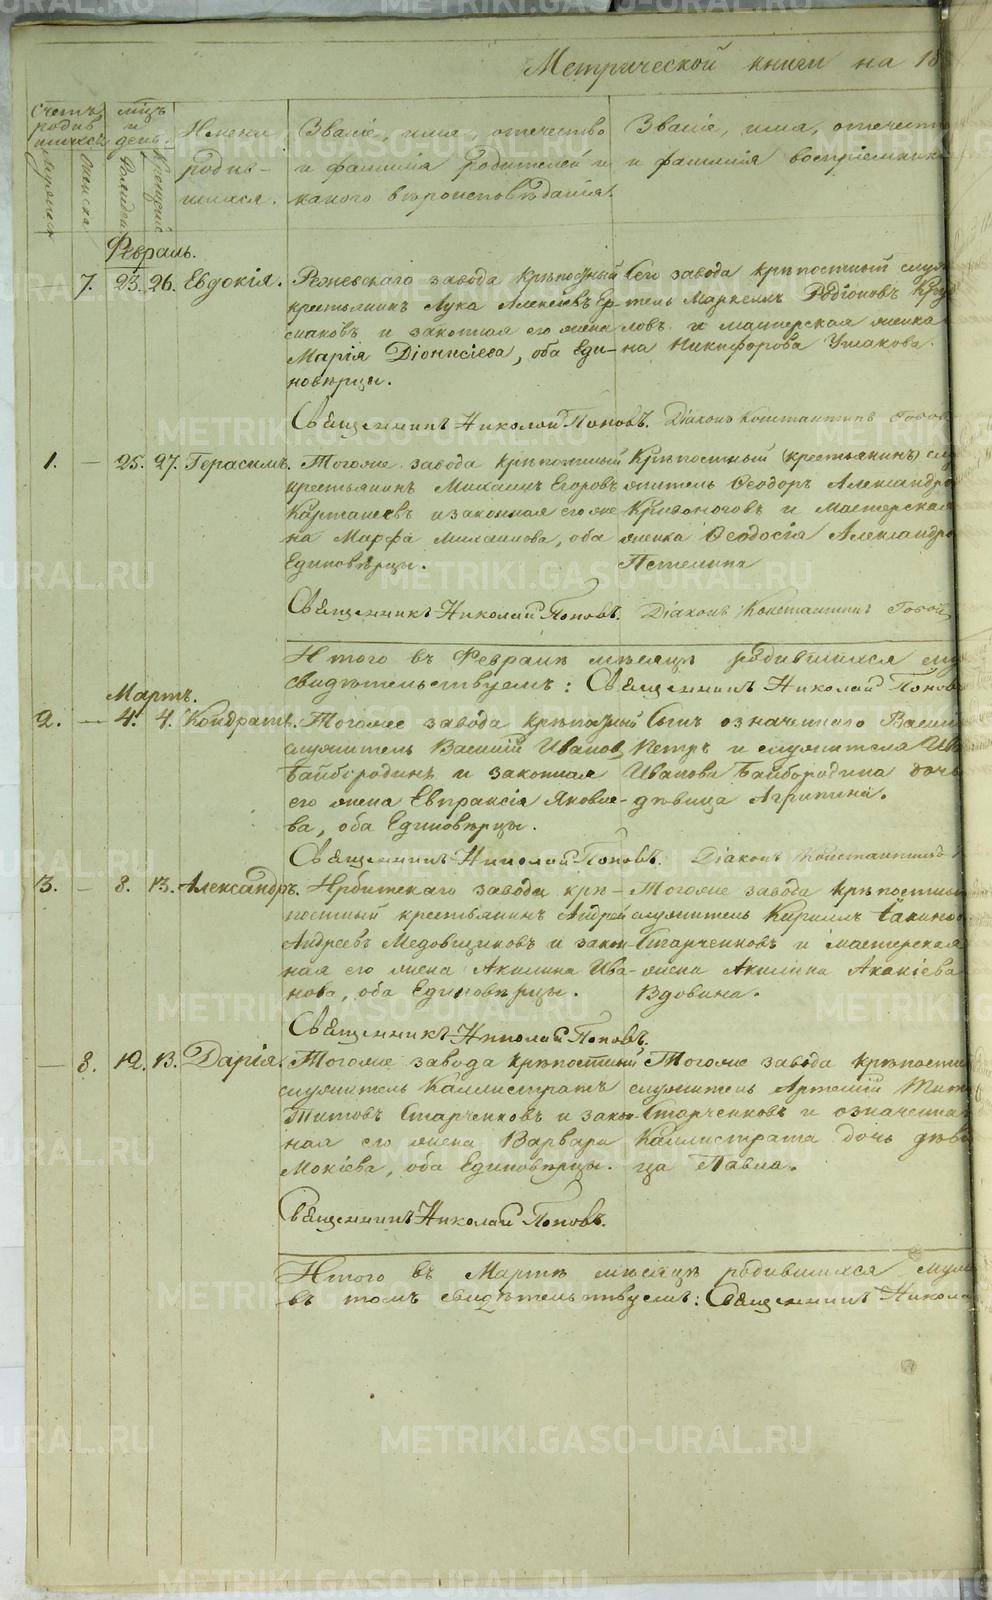 Метрической книги на 18
Счетъ родив шихся
мѣц. и день.
Мужеска
Женска
Рожденiя
Крещенiя
Имена родив- шихся.
Званiе, имя, отечество
и фамилiя родителей и
какого вѣроисповѣданiя.
Званiе, имя, отечество
и фамилiя воспрiемнико
Февраль.
— 7. 23. 26. Евдокiя.
Режевскаго завода крѣпостный
крестьянинъ Лука Алексѣевъ Ер
маковъ и законная его жена
Марiя Дiонисiева, оба Еди-
новѣрцы.
Сего завода крѣпостный служ
тель Маркеллъ Родiоновъ
ловъ и мастерская жен‑
на Никифорова Ушакова.
Священникъ Николай Поповъ. Дiаконъ Константинъ
1. — 25. 27. Герасимъ.
Тогоже завода крѣпостный
крестьянинъ Михаилъ Егоровъ
Карташевъ и законная его же
на Марфа Михаилова, оба
Единовѣрцы.
Крѣпостный (крестьянинъ) слу
житель Ѳеодоръ Александро
Кривоноговъ и мастерская
женка Ѳеодосiя Александро
Петелина
Священникъ Николай Поповъ. Дiаконъ Константинъ
Итого въ Февралѣ мѣсяцѣ родившихся му
свидѣтельствуемъ: Священникъ Николай Попов
Мартъ.
2. — 4. 4. Кондратъ.
Тогоже завода крѣпостный
служитель Василiй Ивановъ
Байбородинъ и законная
его жена Евпраксiя Яковле-
ва, оба Единовѣрцы.
Сынъ означеннаго Васил
Петръ и служителя Ив
Иванова Байбородина дочь
дѣвица Агрипина.
Священникъ Николай Поповъ. Дiаконъ Константинъ
3. — 8. 13. Александръ.
Ирбитскаго завода крѣ-
постный крестьянинъ Андрей
Андреевъ Медовщиковъ и закон
ная его жена Акилина Ива-
нова, оба Единовѣрцы.
Тогоже завода крѣпостны
служитель Кириллъ
Старченковъ и мастерская
жена Акилина Акакiева
Вдовина.
Священникъ Николай Поповъ.
— 8. 12. 13. Дарiя.
Тогоже завода крѣпостный
служитель Каллистратъ
Титовъ Старченковъ и закон-
ная его жена Варвара
Мокiева, оба Единовѣрцы.
Тогоже завода крѣпостны
служитель Артемiй Тит
Старченковъ и означенна
Каллистрата дочь дѣви
ца Павла.
Священникъ Николай Поповъ.
Итого въ Мартѣ мѣсяцѣ родившихся муж
въ томъ свидѣтельствуемъ: Священникъ Никола
METRIKI.GASO-URAL.RU